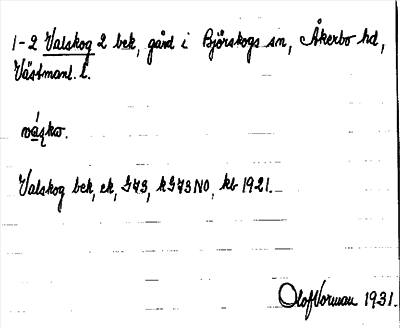 1-2 Valskog 2 bek, gård i Björskogs sn, Åkerbo hd,
Västmanl. l.
váskω.
Valskog bek, ek, G43, kG43NO, kb 1921.
Olof Vorman 1931.